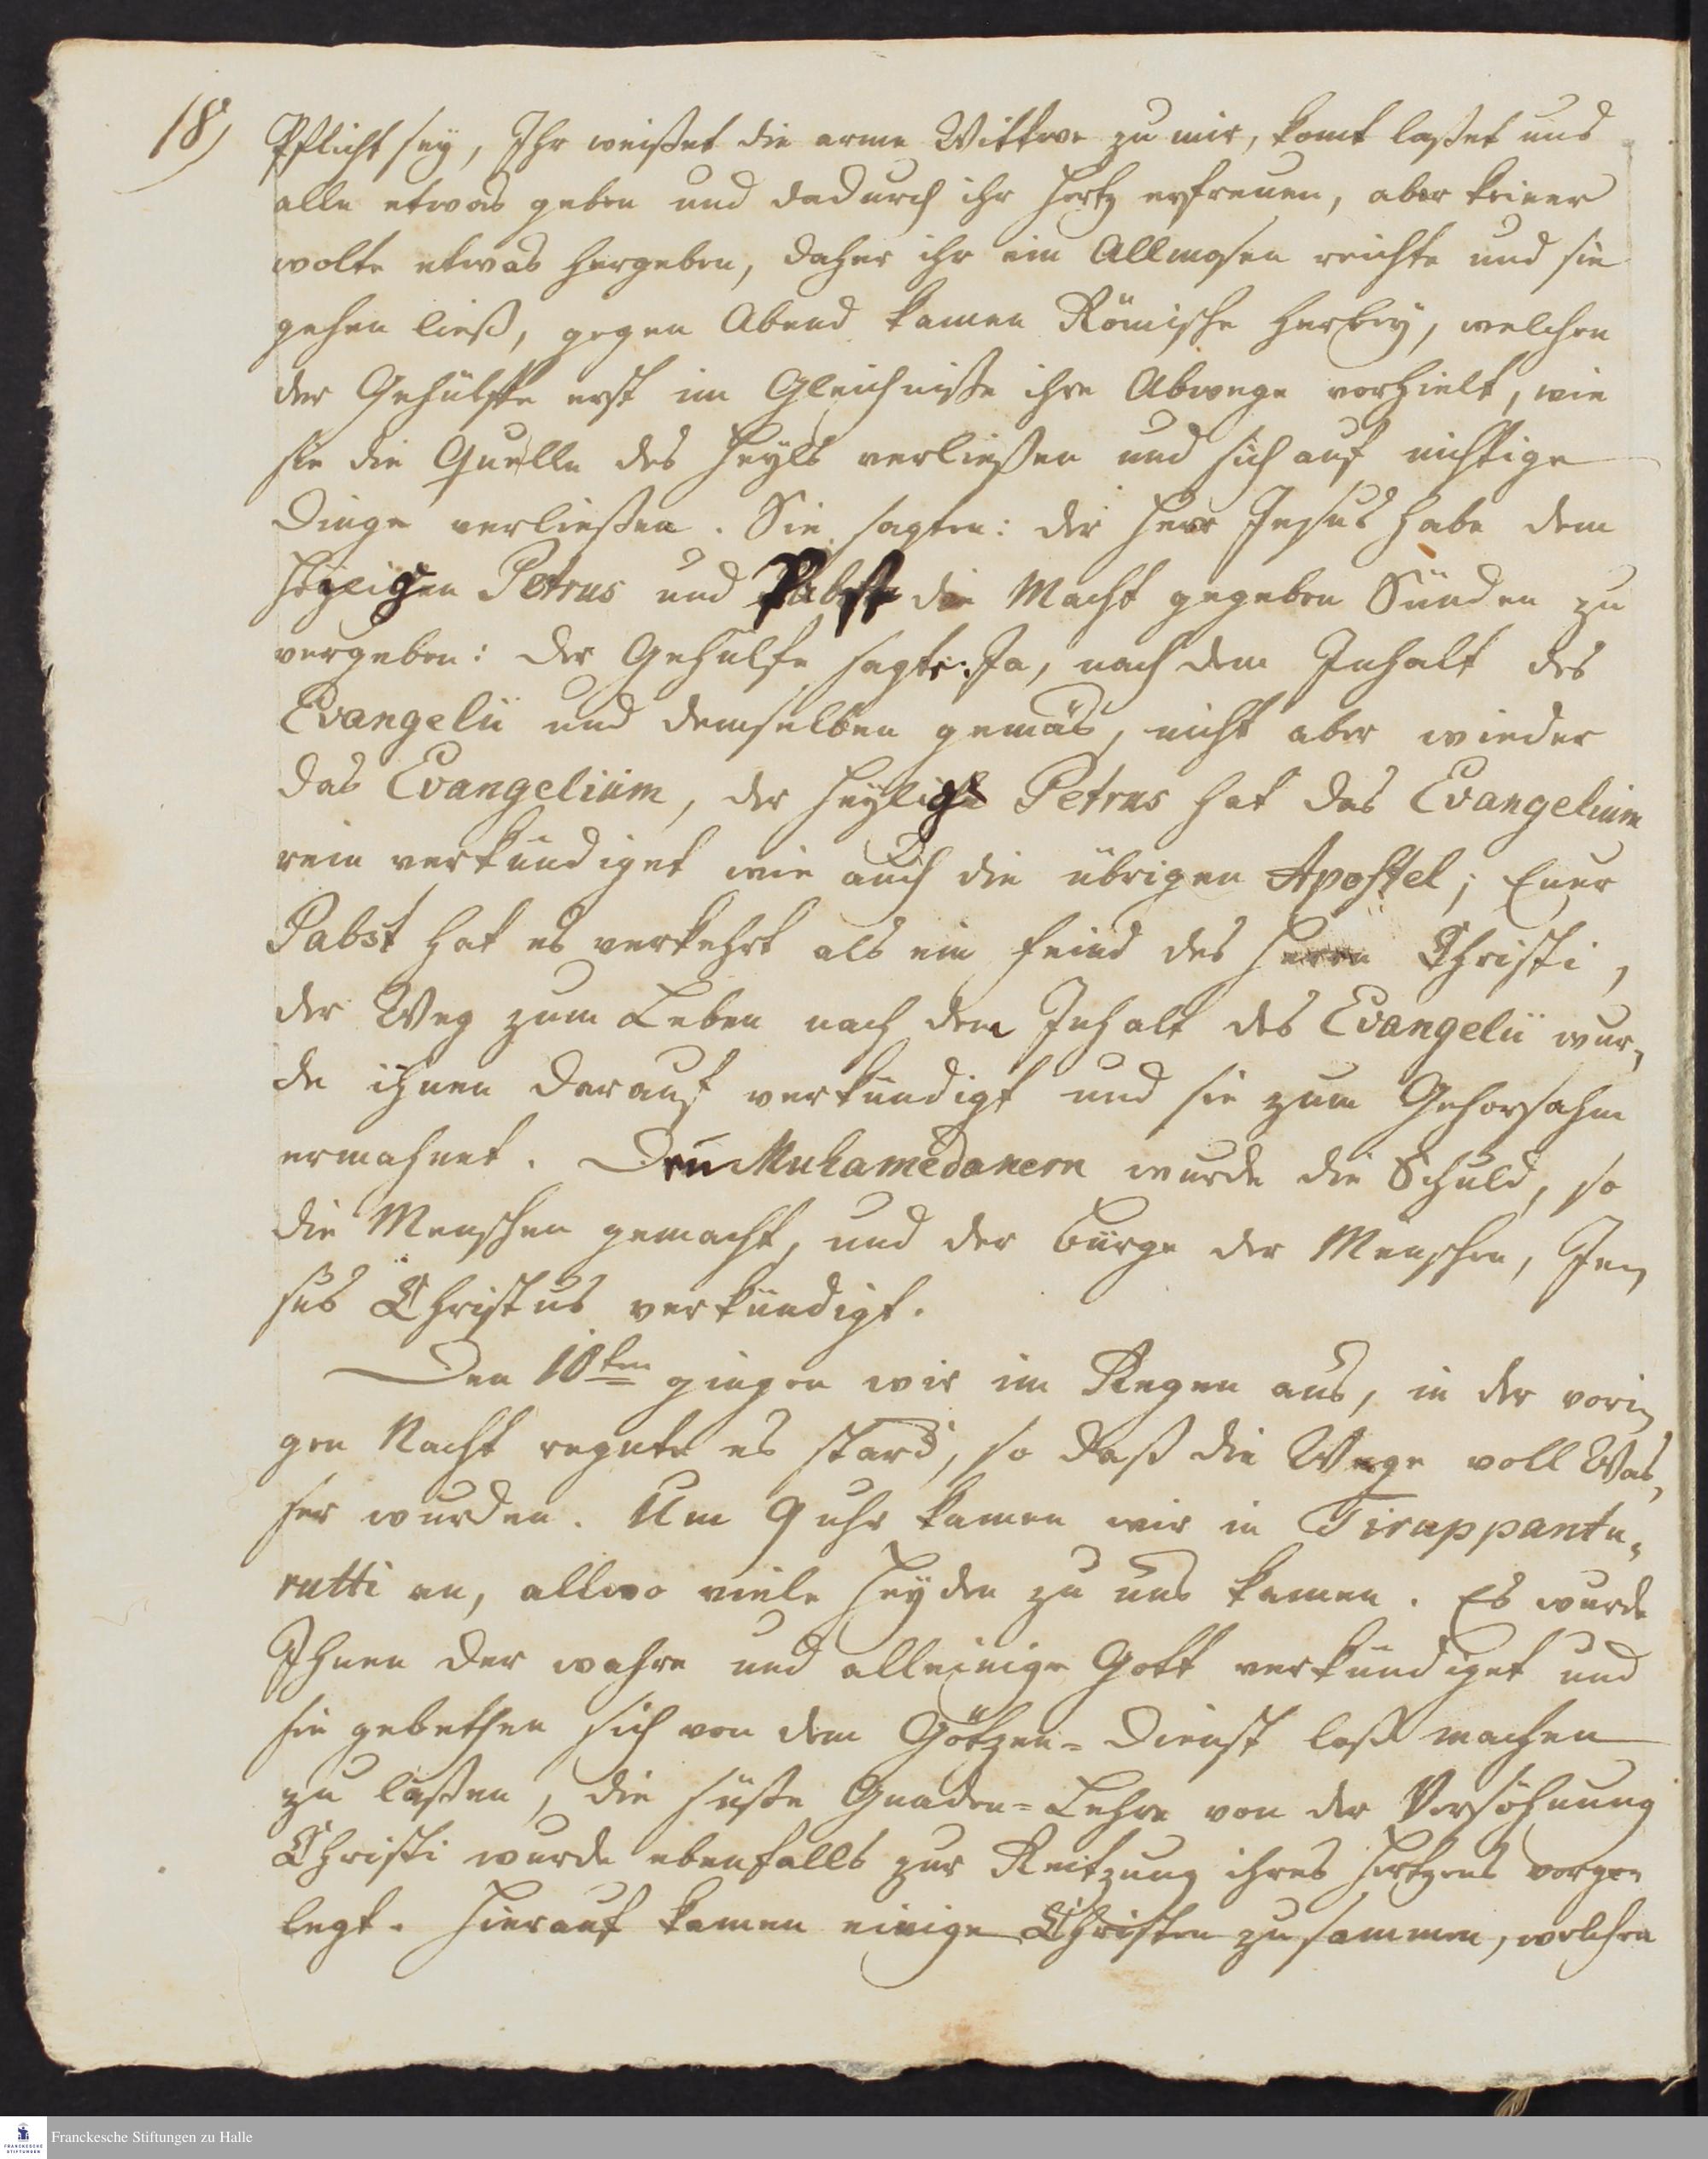 18)
Pflicht sey, Ihr weißet die arme Wittwe zu mir, komt laßet uns
alle etwas geben und dadurch ihr Hertz erfreuen, aber keiner
wolte etwas hergeben, daher ihr ein Allmosen reichte und sie
gehen ließ, gegen Abend kamen Römische herbey, welchen
der Gehülffe erst im Gleichniße ihre Abwege vorhielt, wie
sie die Quelle des Heyls verließen und sich auf nichtige
Dinge verließen. Sie sagten: der Herr Jesus habe dem
Heyligen Petrus und Pabste die Macht gegeben Sünden zu
vergeben: der Gehülfe sagte: Ja, nach dem Inhalt des
Evangelii und demselben gemäs, nicht aber wieder
das Evangelium, der Heylige Petrus hat das Evangelium
rein verkündiget wie auch die übrigen Apostel; Euer
Pabst hat es verkehrt als ein Feind des Herrn Christi,
der Weg zum Leben nach dem Inhalt des Evangelii wur-
de ihnen darauf verkündigt und sie zum Gehorsahm
ermahnet. Den Muhamedanern wurde die Schuld, so
die Menschen gemacht, und der Bürge der Menschen, Je-
sus Christus verkündigt.
Den 10ten gingen wir im Regen aus, in der vori-
gen Nacht regnete es starck, so daß die Wege voll Was-
ser wurden. Um 9 uhr kamen wir in Tiruppantu-
rutti an, allwo viele Heyden zu uns kamen. Es wurde
Ihnen der wahre und alleinige Gott verkündiget und
sie gebethen sich von dem Götzen-Dienst loß machen
zu laßen, die süße Gnaden-Lehre von der Versöhnung
Christi wurde ebenfalls zur Reitzung ihres Hertzens vorge-
legt. Hierauf kamen einige Christen zusammen, welchen
FRANCKESCHE
STIFTUNGEN
Franckesche Stiftungen zu Halle